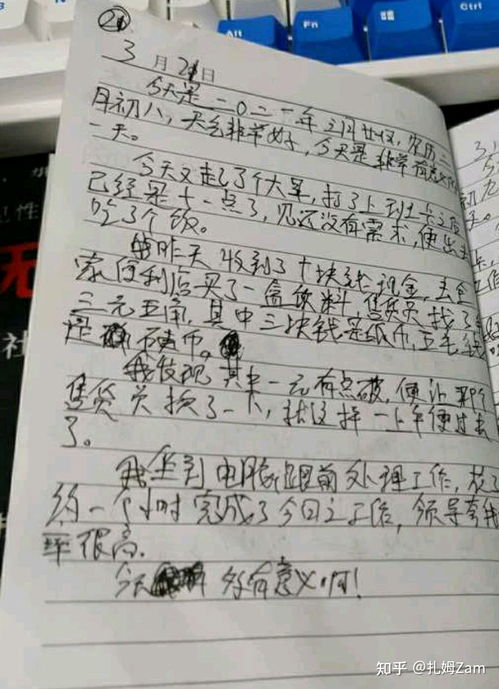 Alt
Fn
Ctrl
21
3月21日
今天是二〇二一年三月廿一,农历二
月初八,天气非常好,今天是非常有意义的
一天。
今天又起了个大早,打了卡到工位之后
已经是十一点了,见还没有需求,便出去
吃了个饭。
昨天收到了十块钱现金,去全
家便利店买了一盒饮料,售货员找了
三元五角,其中三块钱是纸币,五毛钱
是硬币。
我发现其中一元有点破,便让那个
售货员换了一下,就这样一上午便过去
了。
我坐到电脑跟前处理工作,花了
约一个小时完成了今日之工作,领导夸我
率很高。
今天 好有意义啊!
无
社
知乎 @扎姆Zam